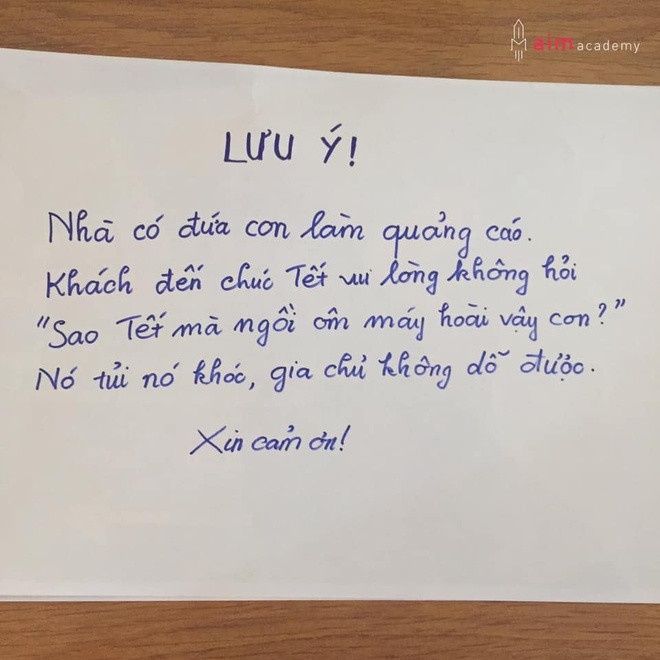 aim academy
LƯU Ý!
Nhà có đứa con làm quảng cáo.
Khách đến chúc Tết vui lòng không hỏi
"Sao Tết mà ngồi ôm máy hoài vậy con?"
Nó tủi nó khóc, gia chủ không dỗ được.
Xin cảm ơn!